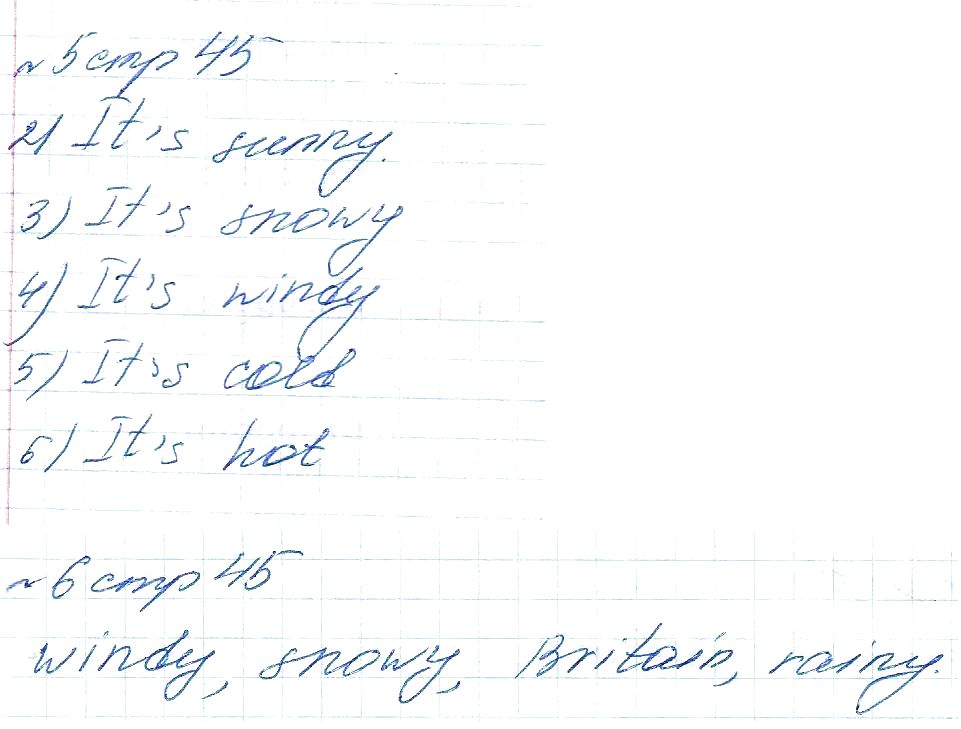 ~ 5 стр 45
2) It's sunny.
3) It's snowy
4) It's windy
5) It's cold
6) It's hot
~ 6 стр 45
windy, snowy, Britain, rainy.